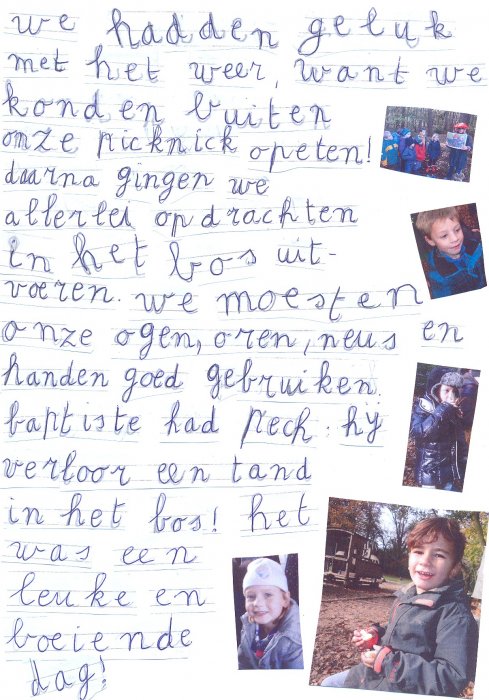 we hadden geluk
met het weer, want we
konden buiten
onze picknick opeten!
daarna gingen we
allerlei opdrachten
in het bos uit-
voeren. we moesten
onze ogen, oren, neus en
handen goed gebruiken.
baptiste had pech: hy
verloor een tand
in het bos! het
was een
leuke en
boeiende
dag!